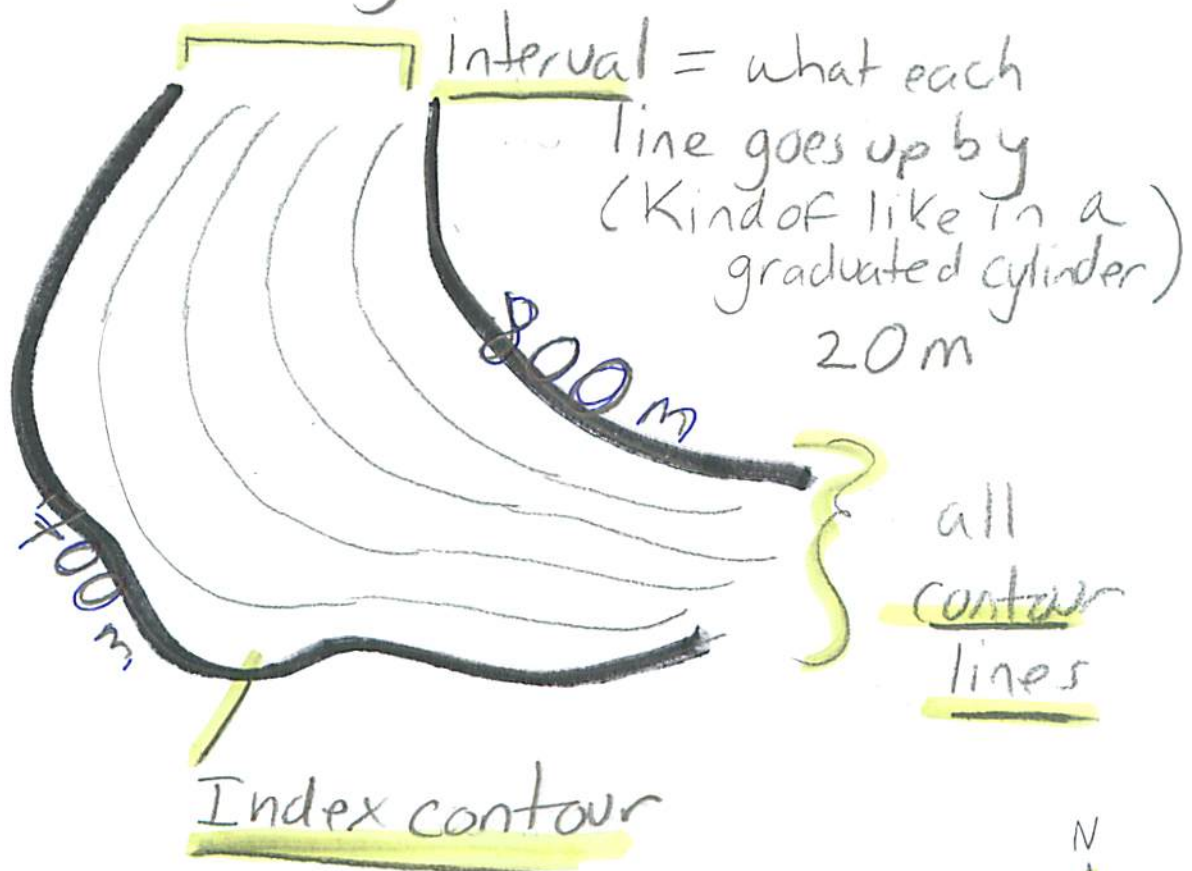 interval = what each
line goes up by
(Kind of like in a
graduated cylinder)
20 m
800 m
700 m
all
contour
lines
Index contour
N